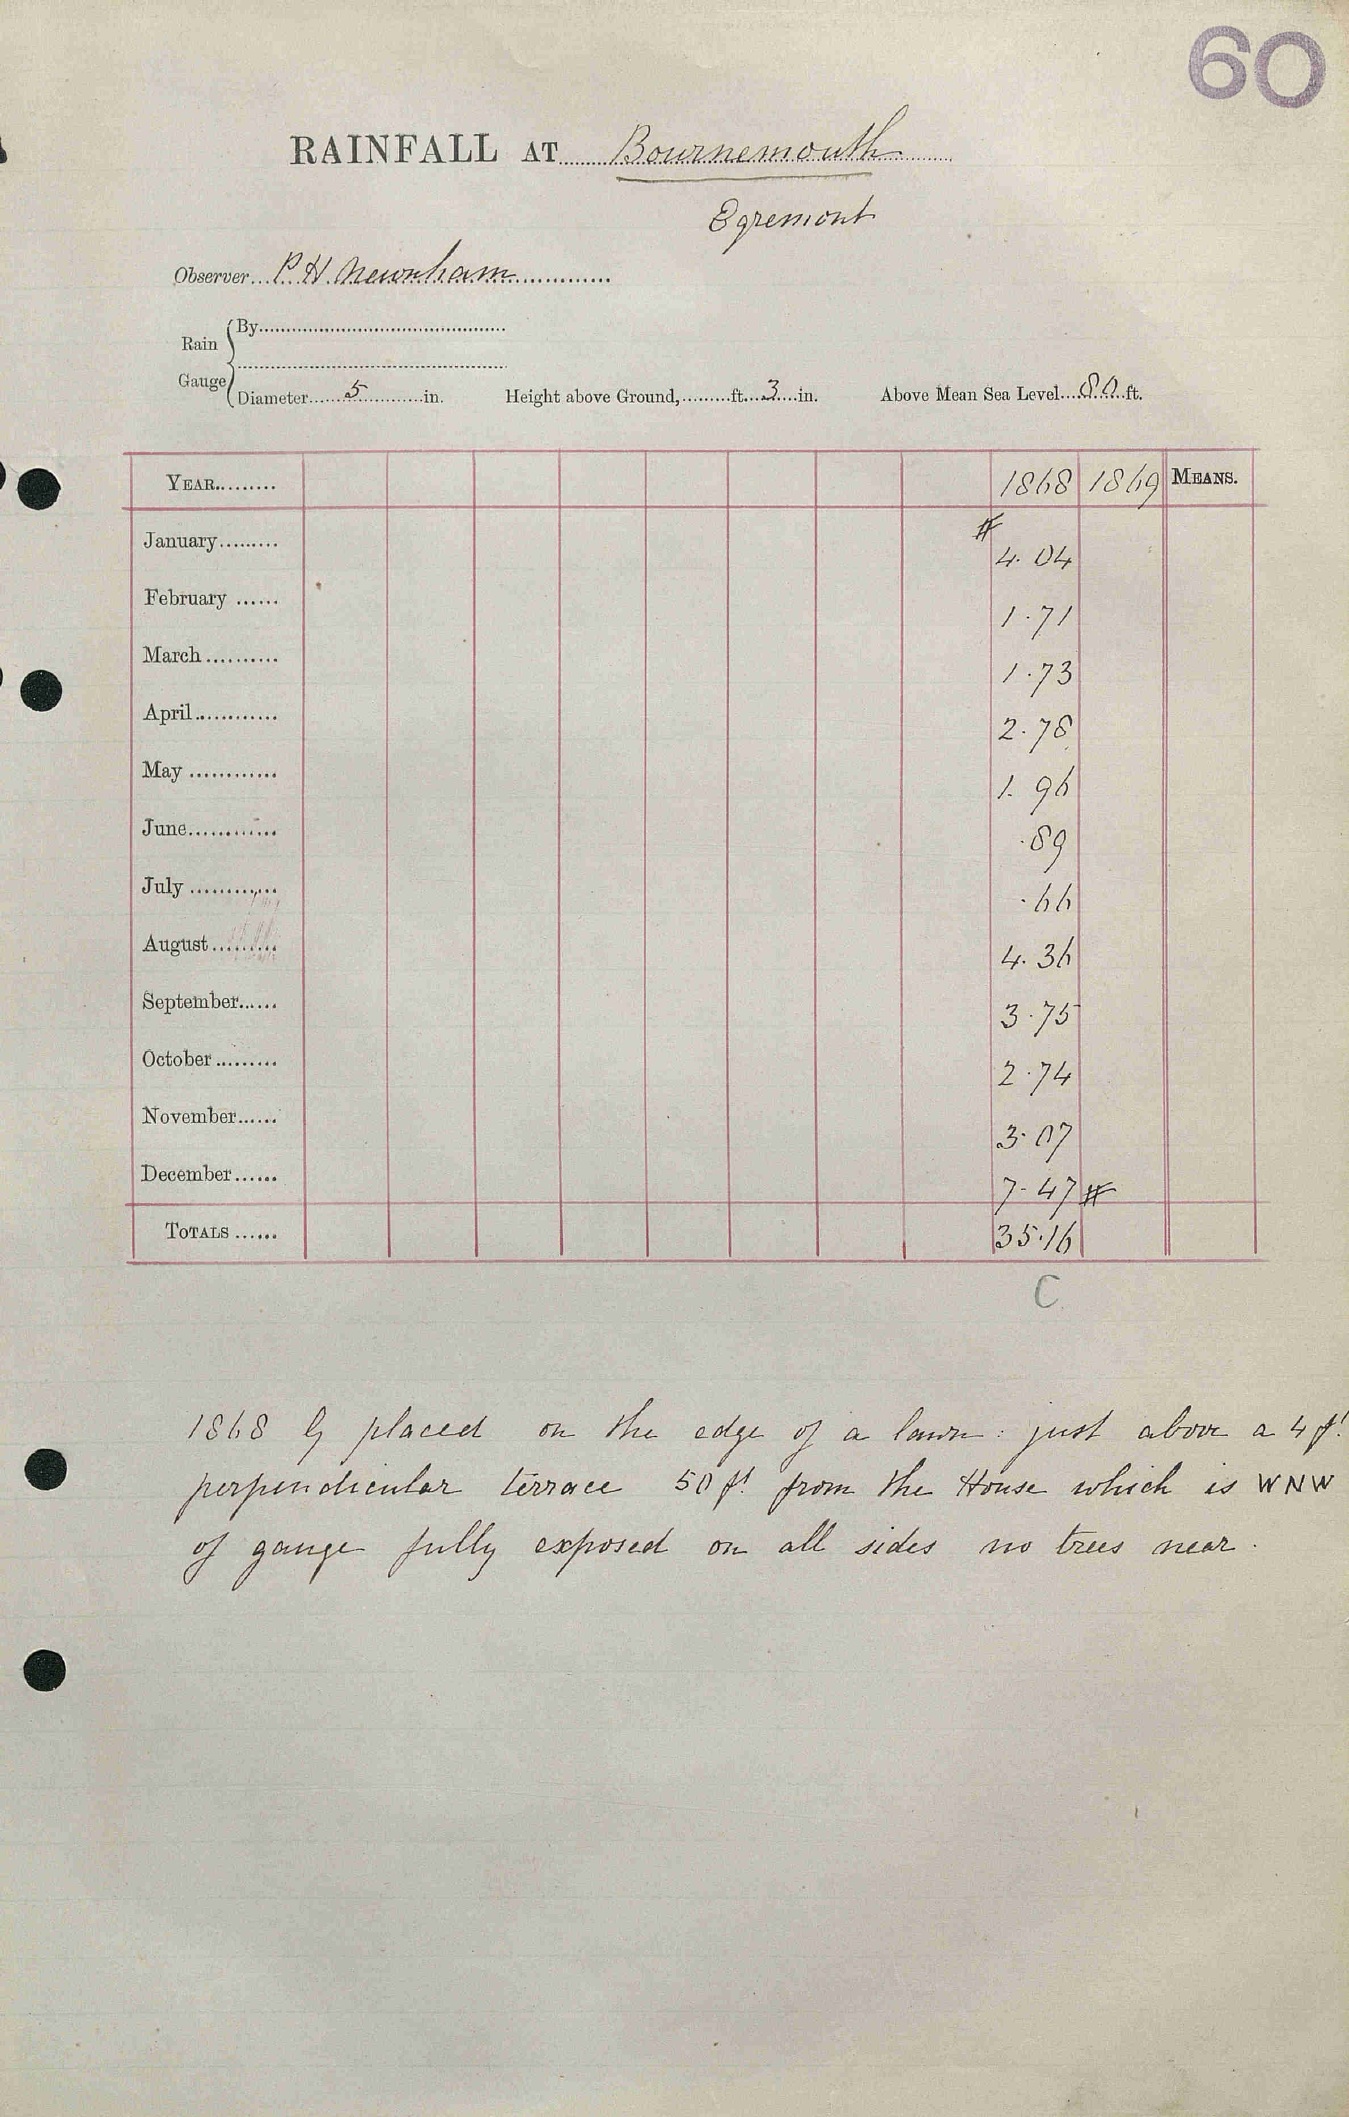 60
RAINFALL AT Bournemouth
Egremont
Observer P. H. Newnham
Rain Gauge
By
Diameter 5 in. Height above Ground, ft. 3 in. Above Mean Sea Level 80 ft.
YEAR 1868 1869 MEANS.
January # 4.04
February 1.71
March 1.73
April 2.78
May 1.96
June .89
July .66
August 4.36
September 3.75
October 2.74
November 3.07
December 7.47 #
TOTALS 35.16
C
1868 G placed on the edge of a lawn: just above a 4 ft
perpendicular terrace 50 ft from the House which is WNW
of gauge fully exposed on all sides no trees near.